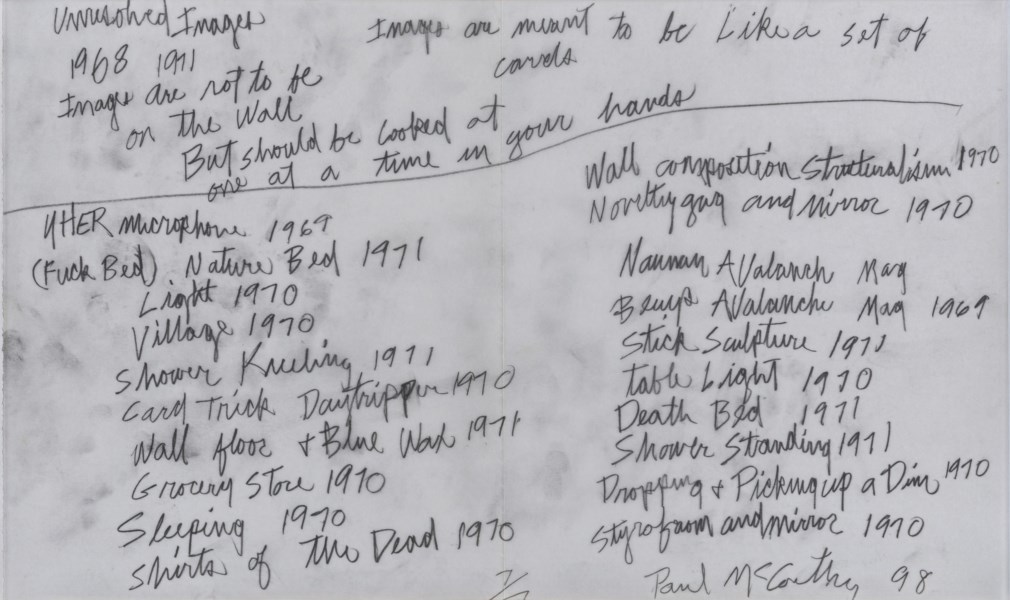 Unresolved Images
1968 1971
Images are not to be
on the Wall
But should be Looked at
one at a time in your hands
Images are meant to be Like a set of
cards
YHER microphone 1969
(Fuck Bed) Nature Bed 1971
Light 1970
Village 1970
Shower Kneeling 1971
Card Trick Daytripper 1970
Wall floor + Blue Wax 1971
Grocery Store 1970
Sleeping 1970
Shirts of the Dead 1970
Wall composition Structuralism 1970
Novelty gag and mirror 1970
Nauman AValanch Mag
Beuys AValanche Mag 1969
Stick Sculpture 1971
table Light 1970
Death Bed 1971
Shower Standing 1971
Dropping + Picking up a Dim 1970
Styrofoam and mirror 1970
Paul McCarthy 98